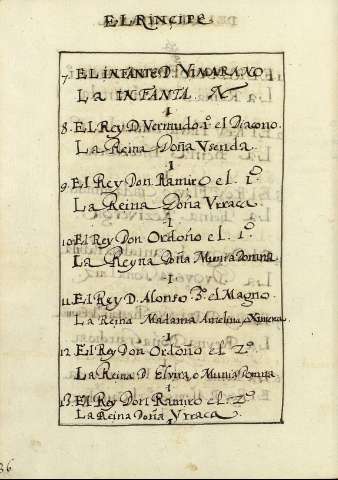 EL RINCIPE
7. EL INFANTE D. VIMARANO
La INFANTA N
8. EL Rey D. Vermudo 1º el Diacono
La Reina Doña Vsenda
9. El Rey Don Ramiro el 1º
La Reyna Doña Vrraca
10. El Rey Don Ordoño el 1º
La Reyna Doña Munia Domna
11. El Rey D. Alonso 3º el Magno
La Reina Madama Amelina, o Ximena
12. El Rey Don Ordoño el 2º
La Reina D. Elvira, o Munia Domna
13. El Rey Don Ramiro el 2º
La Reina Doña Vrraca
36